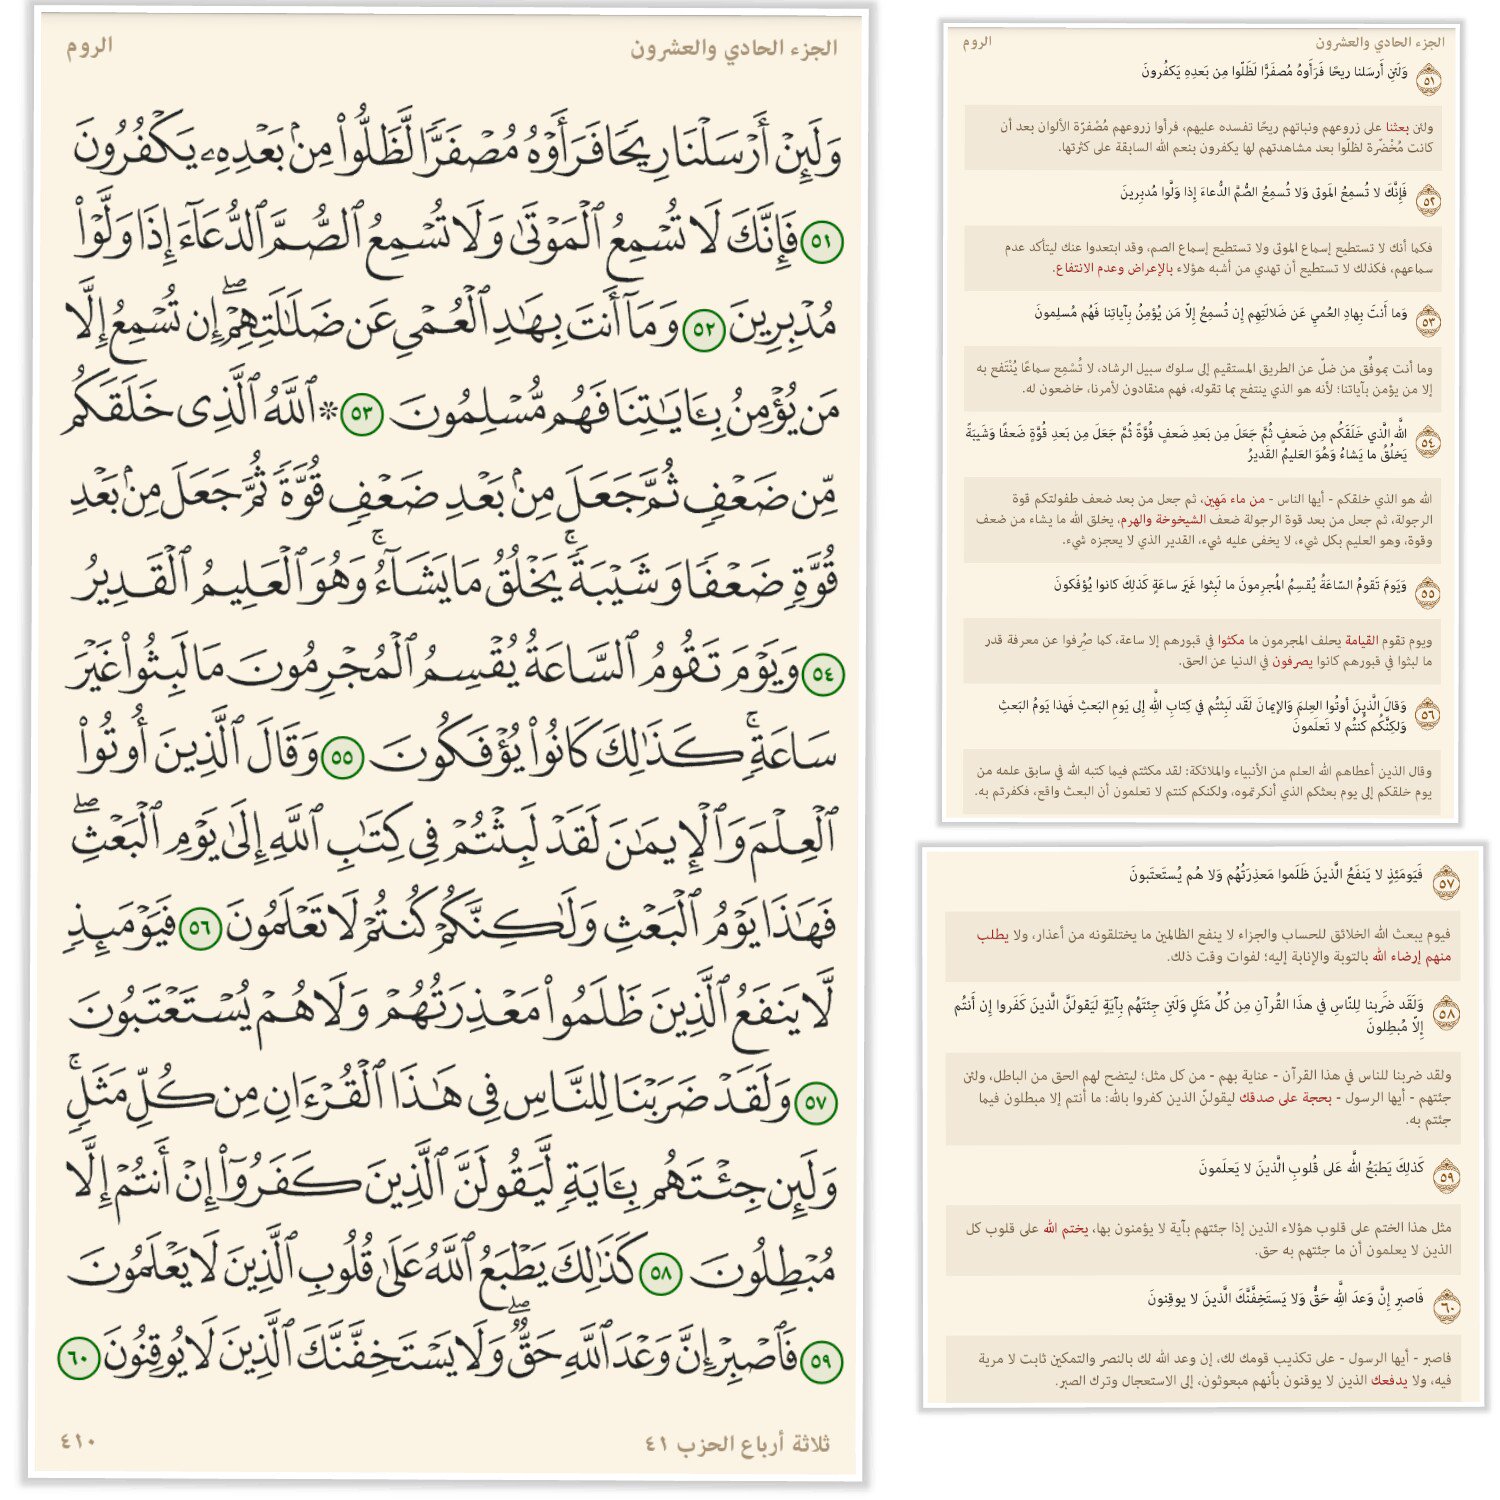 الجزء الحادي والعشرون
الروم
وَلَئِنْ أَرْسَلْنَا رِيحًا فَرَأَوْهُ مُصْفَرًّا لَّظَلُّوا۟ مِنۢ بَعْدِهِۦ يَكْفُرُونَ
٥١ فَإِنَّكَ لَا تُسْمِعُ ٱلْمَوْتَىٰ وَلَا تُسْمِعُ ٱلصُّمَّ ٱلدُّعَآءَ إِذَا وَلَّوْا۟
مُدْبِرِينَ ٥٢ وَمَآ أَنتَ بِهَـٰدِ ٱلْعُمْىِ عَن ضَلَـٰلَتِهِمْ ۖ إِن تُسْمِعُ إِلَّا
مَن يُؤْمِنُ بِـَٔايَـٰتِنَا فَهُم مُّسْلِمُونَ ٥٣ ۞ ٱللَّهُ ٱلَّذِى خَلَقَكُم
مِّن ضَعْفٍ ثُمَّ جَعَلَ مِنۢ بَعْدِ ضَعْفٍ قُوَّةً ثُمَّ جَعَلَ مِنۢ بَعْدِ
قُوَّةٍ ضَعْفًا وَشَيْبَةً ۚ يَخْلُقُ مَا يَشَآءُ ۚ وَهُوَ ٱلْعَلِيمُ ٱلْقَدِيرُ
٥٤ وَيَوْمَ تَقُومُ ٱلسَّاعَةُ يُقْسِمُ ٱلْمُجْرِمُونَ مَا لَبِثُوا۟ غَيْرَ
سَاعَةٍ ۚ كَذَٰلِكَ كَانُوا۟ يُؤْفَكُونَ ٥٥ وَقَالَ ٱلَّذِينَ أُوتُوا۟
ٱلْعِلْمَ وَٱلْإِيمَـٰنَ لَقَدْ لَبِثْتُمْ فِى كِتَـٰبِ ٱللَّهِ إِلَىٰ يَوْمِ ٱلْبَعْثِ ۖ
فَهَـٰذَا يَوْمُ ٱلْبَعْثِ وَلَـٰكِنَّكُمْ كُنتُمْ لَا تَعْلَمُونَ ٥٦ فَيَوْمَئِذٍ
لَّا يَنفَعُ ٱلَّذِينَ ظَلَمُوا۟ مَعْذِرَتُهُمْ وَلَا هُمْ يُسْتَعْتَبُونَ
٥٧ وَلَقَدْ ضَرَبْنَا لِلنَّاسِ فِى هَـٰذَا ٱلْقُرْءَانِ مِن كُلِّ مَثَلٍ ۚ
وَلَئِن جِئْتَهُم بِـَٔايَةٍ لَّيَقُولَنَّ ٱلَّذِينَ كَفَرُوٓا۟ إِنْ أَنتُمْ إِلَّا
مُبْطِلُونَ ٥٨ كَذَٰلِكَ يَطْبَعُ ٱللَّهُ عَلَىٰ قُلُوبِ ٱلَّذِينَ لَا يَعْلَمُونَ
٥٩ فَٱصْبِرْ إِنَّ وَعْدَ ٱللَّهِ حَقٌّ ۖ وَلَا يَسْتَخِفَّنَّكَ ٱلَّذِينَ لَا يُوقِنُونَ ٦٠
ثلاثة أرباع الحزب ٤١
٤١٠
الجزء الحادي والعشرون
الروم
٥١ وَلَئِن أَرسَلنا ريحًا فَرَأَوهُ مُصفَرًّا لَظَلّوا مِن بَعدِهِ يَكفُرونَ
ولئن بعثنا على زروعهم ونباتهم ريحًا تفسده عليهم، فرأوا زروعهم مُصْفرّة الألوان بعد أن
كانت مُخْضَرة لظلّوا بعد مشاهدتهم لها يكفرون بنعم الله السابقة على كثرتها.
٥٢ فَإِنَّكَ لا تُسمِعُ المَوتى وَلا تُسمِعُ الصُّمَّ الدُّعاءَ إِذا وَلَّوا مُدبِرينَ
فكما أنك لا تستطيع إسماع الموتى ولا تستطيع إسماع الصم، وقد ابتعدوا عنك ليتأكد عدم
سماعهم، فكذلك لا تستطيع أن تهدي من أشبه هؤلاء بالإعراض وعدم الانتفاع.
٥٣ وَما أَنتَ بِهادِ العُميِ عَن ضَلالَتِهِم إِن تُسمِعُ إِلّا مَن يُؤمِنُ بِآياتِنا فَهُم مُسلِمونَ
وما أنت بموفِّق من ضلّ عن الطريق المستقيم إلى سلوك سبيل الرشاد، لا تُسْمِع سماعًا يُنْتَفع به
إلا من يؤمن بآياتنا؛ لأنه هو الذي ينتفع بما تقوله، فهم منقادون لأمرنا، خاضعون له.
٥٤ اللَّهُ الَّذي خَلَقَكُم مِن ضَعفٍ ثُمَّ جَعَلَ مِن بَعدِ ضَعفٍ قُوَّةً ثُمَّ جَعَلَ مِن بَعدِ قُوَّةٍ ضَعفًا وَشَيبَةً
يَخلُقُ ما يَشاءُ وَهُوَ العَليمُ القَديرُ
الله هو الذي خلقكم - أيها الناس - من ماء مَهِين، ثم جعل من بعد ضعف طفولتكم قوة
الرجولة، ثم جعل من بعد قوة الرجولة ضعف الشيخوخة والهرم، يخلق الله ما يشاء من ضعف
وقوة، وهو العليم بكل شيء، لا يخفى عليه شيء، القدير الذي لا يعجزه شيء.
٥٥ وَيَومَ تَقومُ السّاعَةُ يُقسِمُ المُجرِمونَ ما لَبِثوا غَيرَ ساعَةٍ كَذلِكَ كانوا يُؤفَكونَ
ويوم تقوم القيامة يحلف المجرمون ما مكثوا في قبورهم إلا ساعة، كما صُرِفوا عن معرفة قدر
ما لبثوا في قبورهم كانوا يصرفون في الدنيا عن الحق.
٥٦ وَقالَ الَّذينَ أوتُوا العِلمَ وَالإيمانَ لَقَد لَبِثتُم في كِتابِ اللَّهِ إِلى يَومِ البَعثِ فَهذا يَومُ البَعثِ
وَلكِنَّكُم كُنتُم لا تَعلَمونَ
وقال الذين أعطاهم الله العلم من الأنبياء والملائكة: لقد مكثتم فيما كتبه الله في سابق علمه من
يوم خلقكم إلى يوم بعثكم الذي أنكرتموه، ولكنكم كنتم لا تعلمون أن البعث واقع، فكفرتم به.
٥٧ فَيَومَئِذٍ لا يَنفَعُ الَّذينَ ظَلَموا مَعذِرَتُهُم وَلا هُم يُستَعتَبونَ
فيوم يبعث الله الخلائق للحساب والجزاء لا ينفح الظالمين ما يختلقونه من أعذار، ولا يطلب
منهم إرضاء الله بالتوبة والإنابة إليه؛ لفوات وقت ذلك.
٥٨ وَلَقَد ضَرَبنا لِلنّاسِ في هذَا القُرآنِ مِن كُلِّ مَثَلٍ وَلَئِن جِئتَهُم بِآيَةٍ لَيَقولَنَّ الَّذينَ كَفَروا إِن أَنتُم
إِلّا مُبطِلونَ
ولقد ضربنا للناس في هذا القرآن - عناية بهم - من كل مثل؛ ليتضح لهم الحق من الباطل، ولئن
جئتهم - أيها الرسول - بحجة على صدقك ليقولنّ الذين كفروا بالله: ما أنتم إلا مبطلون فيما
جئتم به.
٥٩ كَذلِكَ يَطبَعُ اللَّهُ عَلى قُلوبِ الَّذينَ لا يَعلَمونَ
مثل هذا الختم على قلوب هؤلاء الذين إذا جئتهم بآية لا يؤمنون بها، يختم الله على قلوب كل
الذين لا يعلمون أن ما جئتهم به حق.
٦٠ فَاصبِر إِنَّ وَعدَ اللَّهِ حَقٌّ وَلا يَستَخِفَّنَّكَ الَّذينَ لا يوقِنونَ
فاصبر - أيها الرسول - على تكذيب قومك لك، إن وعد الله لك بالنصر والتمكين ثابت لا مرية
فيه، ولا يدفعك الذين لا يوقنون بأنهم مبعوثون، إلى الاستعجال وترك الصبر.